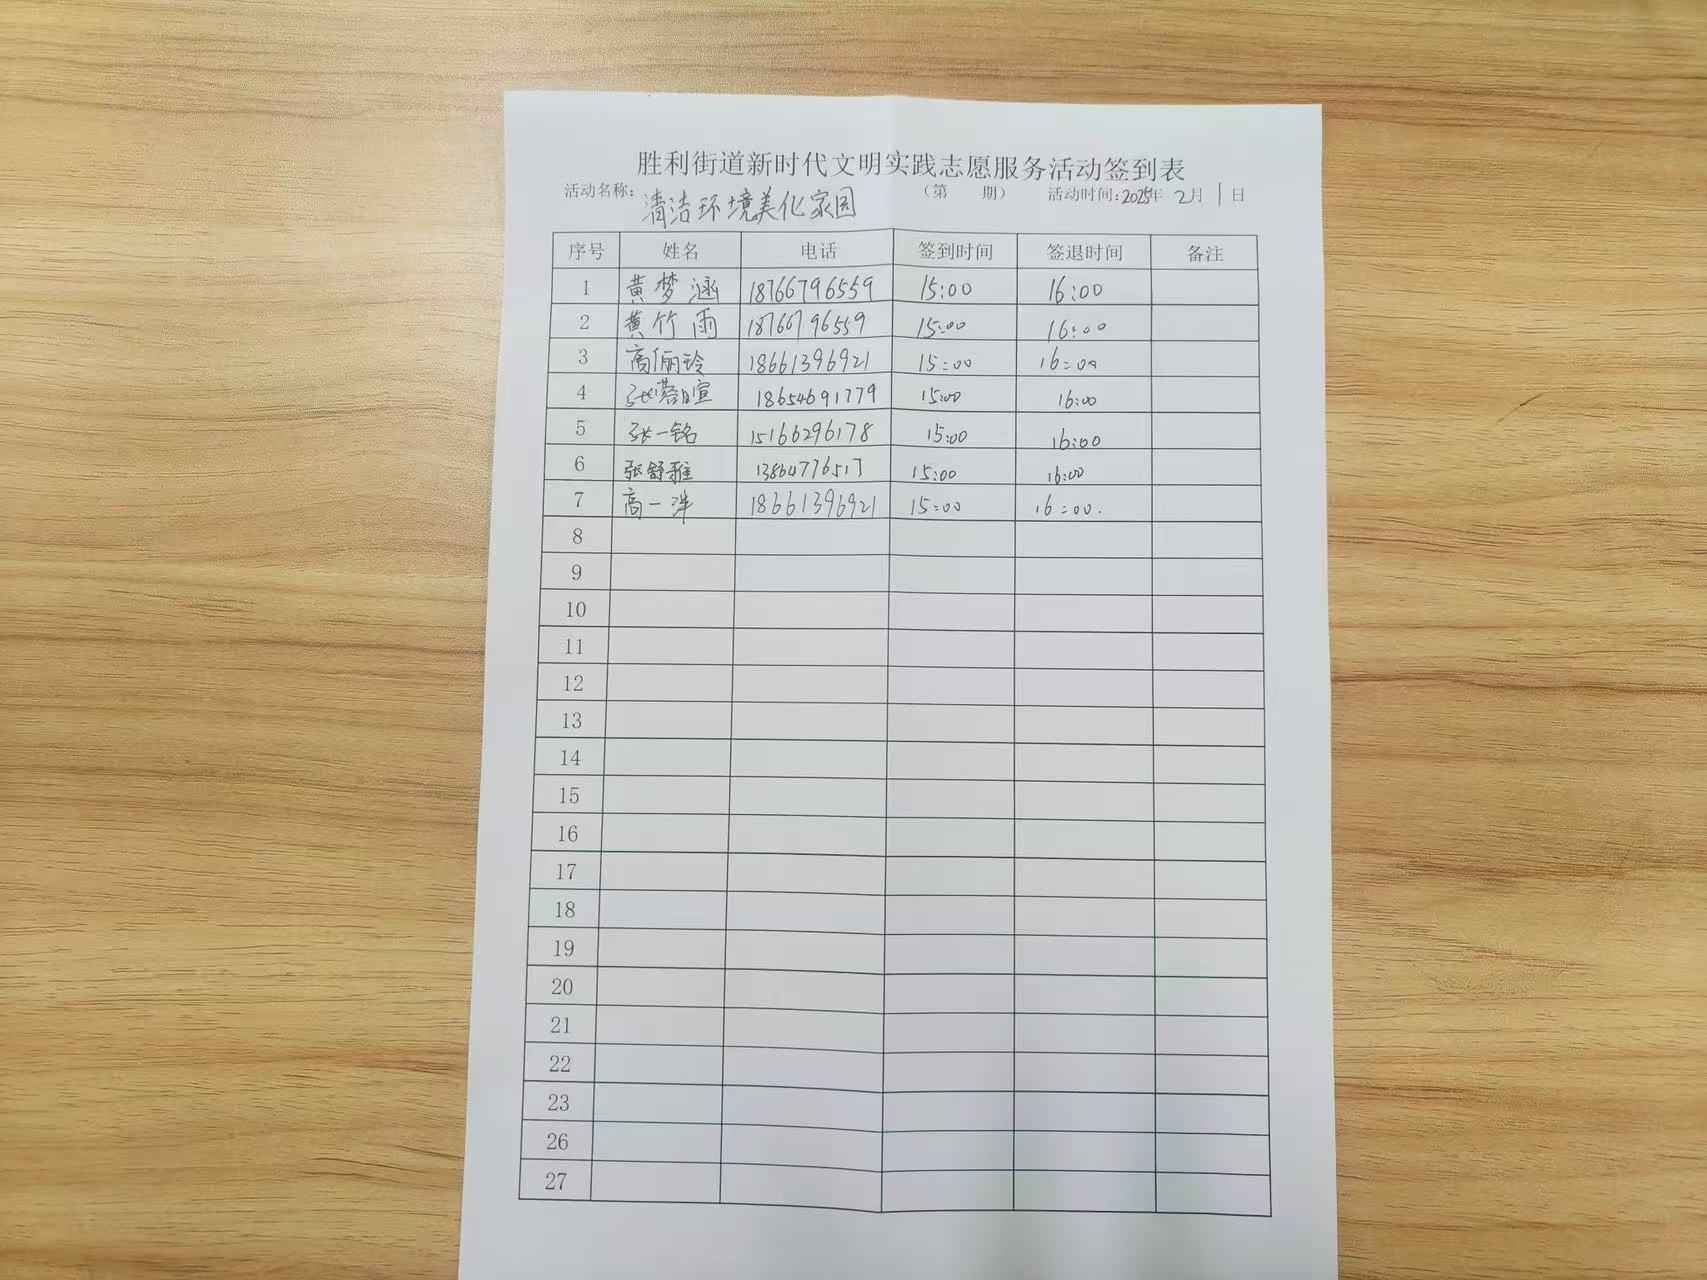 胜利街道新时代文明实践志愿服务活动签到表
活动名称: 清洁环境美化家园 （第 期） 活动时间:2025年 2月 1日
序号 姓名 电话 签到时间 签退时间 备注
1 黄梦涵 18766796559 15:00 16:00
2 黄竹雨 18766796559 15:00 16:00
3 高俪玲 18661396921 15:00 16:00
4 张蓉暄 18654691779 15:00 16:00
5 张一铭 15166296178 15:00 16:00
6 张舒雅 13864776517 15:00 16:00
7 高一洋 18661396921 15:00 16:00.
8
9
10
11
12
13
14
15
16
17
18
19
20
21
22
23
26
27